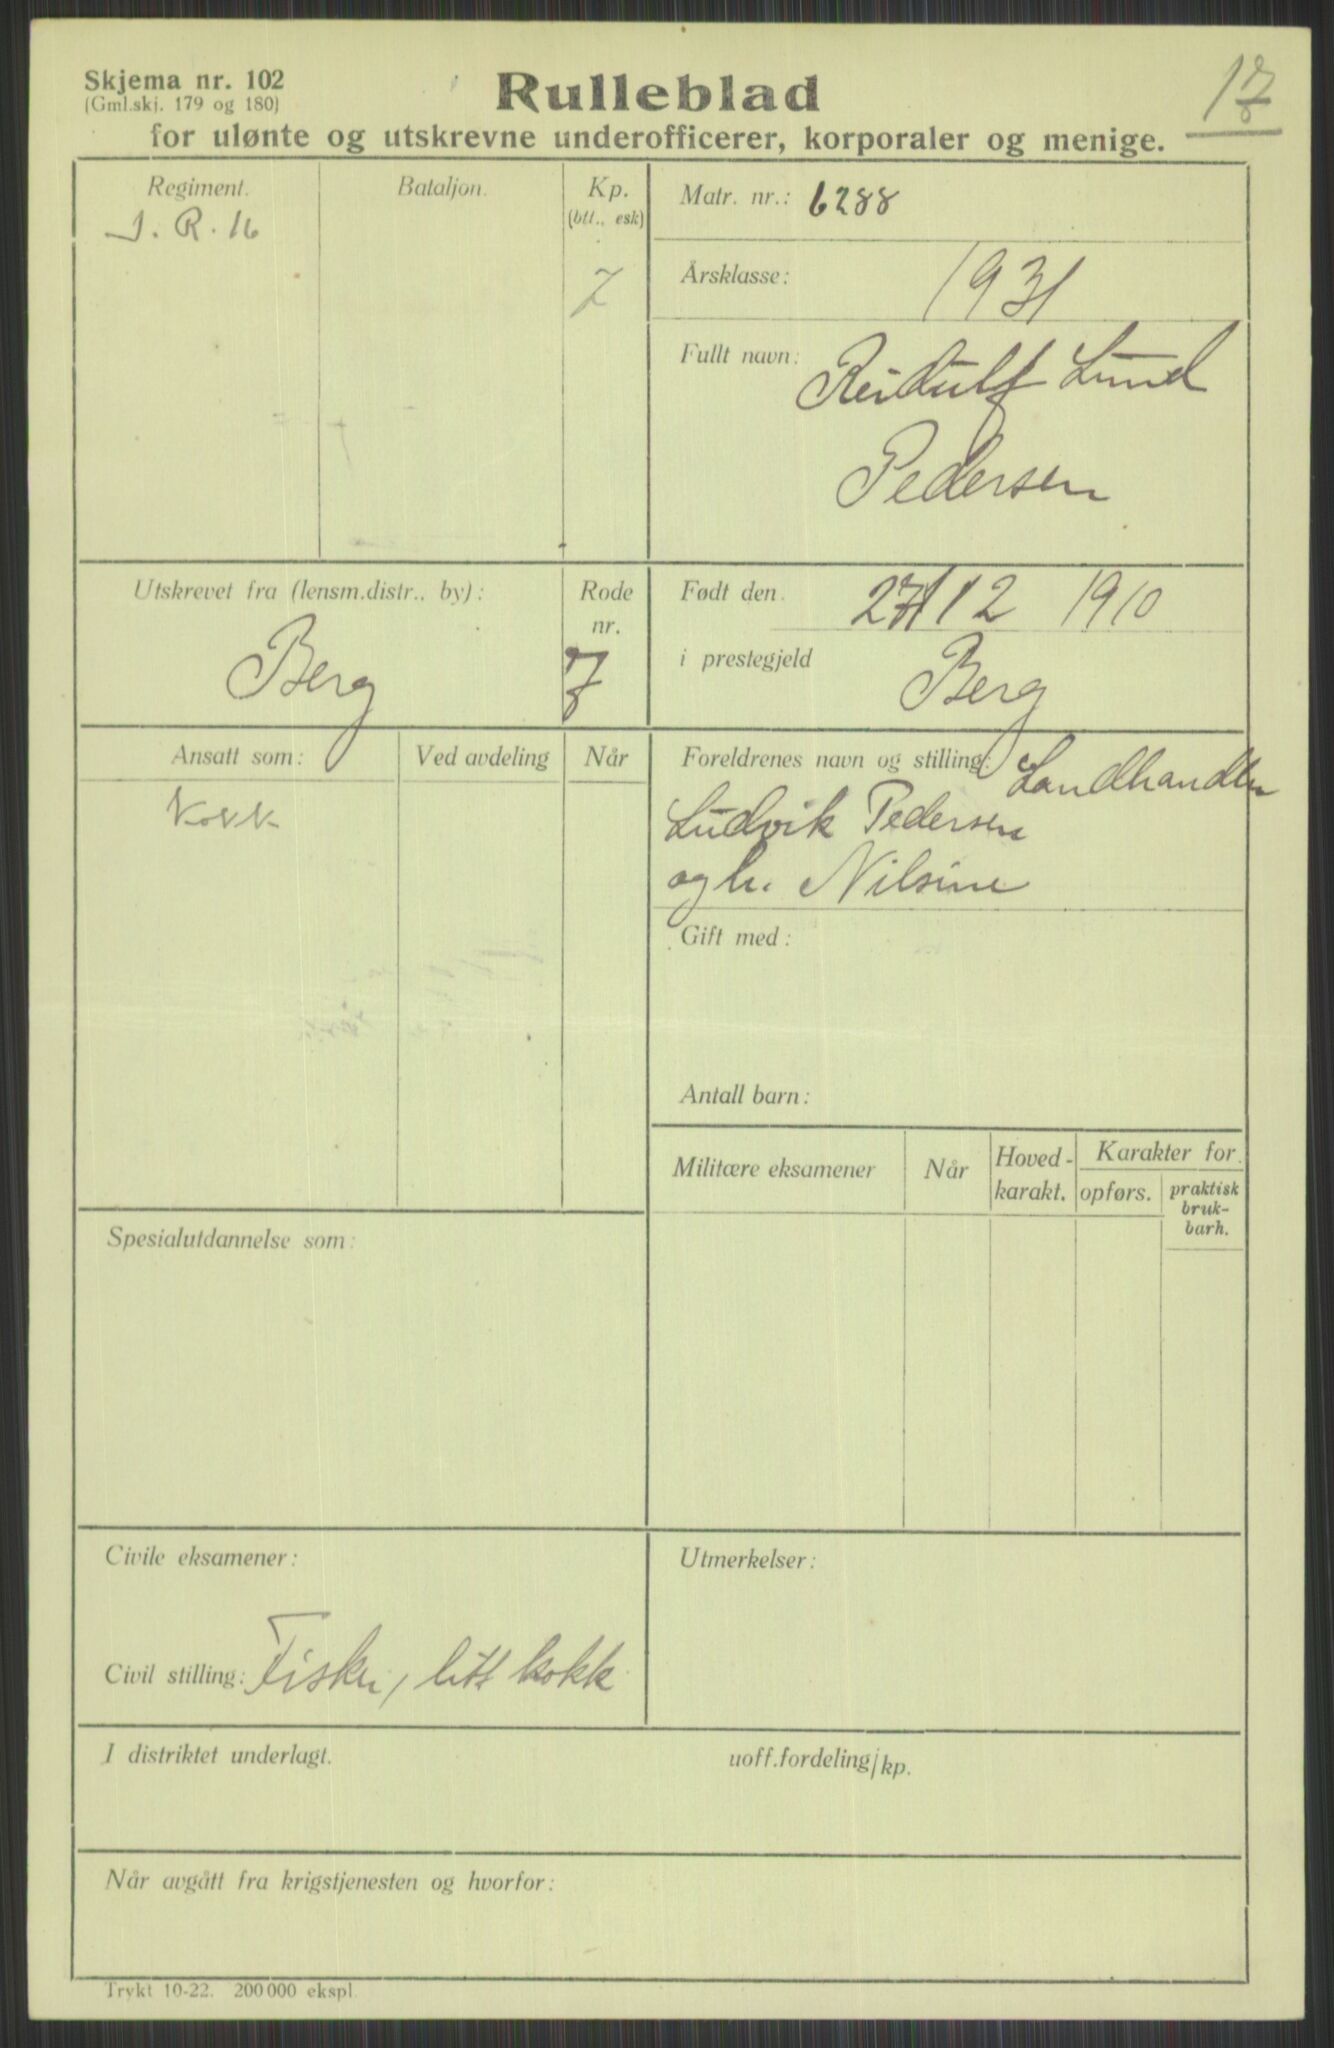 Skjema nr. 102
(Gml.skj. 179 og 180)
Rulleblad
17
for ulønte og utskrevne underofficerer, korporaler og menige.
Regiment.
J. R. 16
Bataljon.
Kp.
(btt., esk)
7
Matr. nr.: 6288
Årsklasse: 1931
Fullt navn: Reidulf Lund
Pedersen
Utskrevet fra (lensm.distr., by):
Berg
Rode
nr.
7
Født den 27/12 1910
i prestegjeld Berg
Ansatt som:
Kokk
Ved avdeling
Når
Foreldrenes navn og stilling: Landhandler
Ludvik Pedersen
og h. Nilsine
Gift med:
Antall barn:
Militære eksamener
Når
Hoved-
karakt.
Karakter for
opførs.
praktisk
bruk-
barh.
Spesialutdannelse som:
Civile eksamener:
Civil stilling: Fisker, litt kokk
Utmerkelser:
I distriktet underlagt.
uoff.fordeling/kp.
Når avgått fra krigstjenesten og hvorfor:
Trykt 10-22. 200000 ekspl.